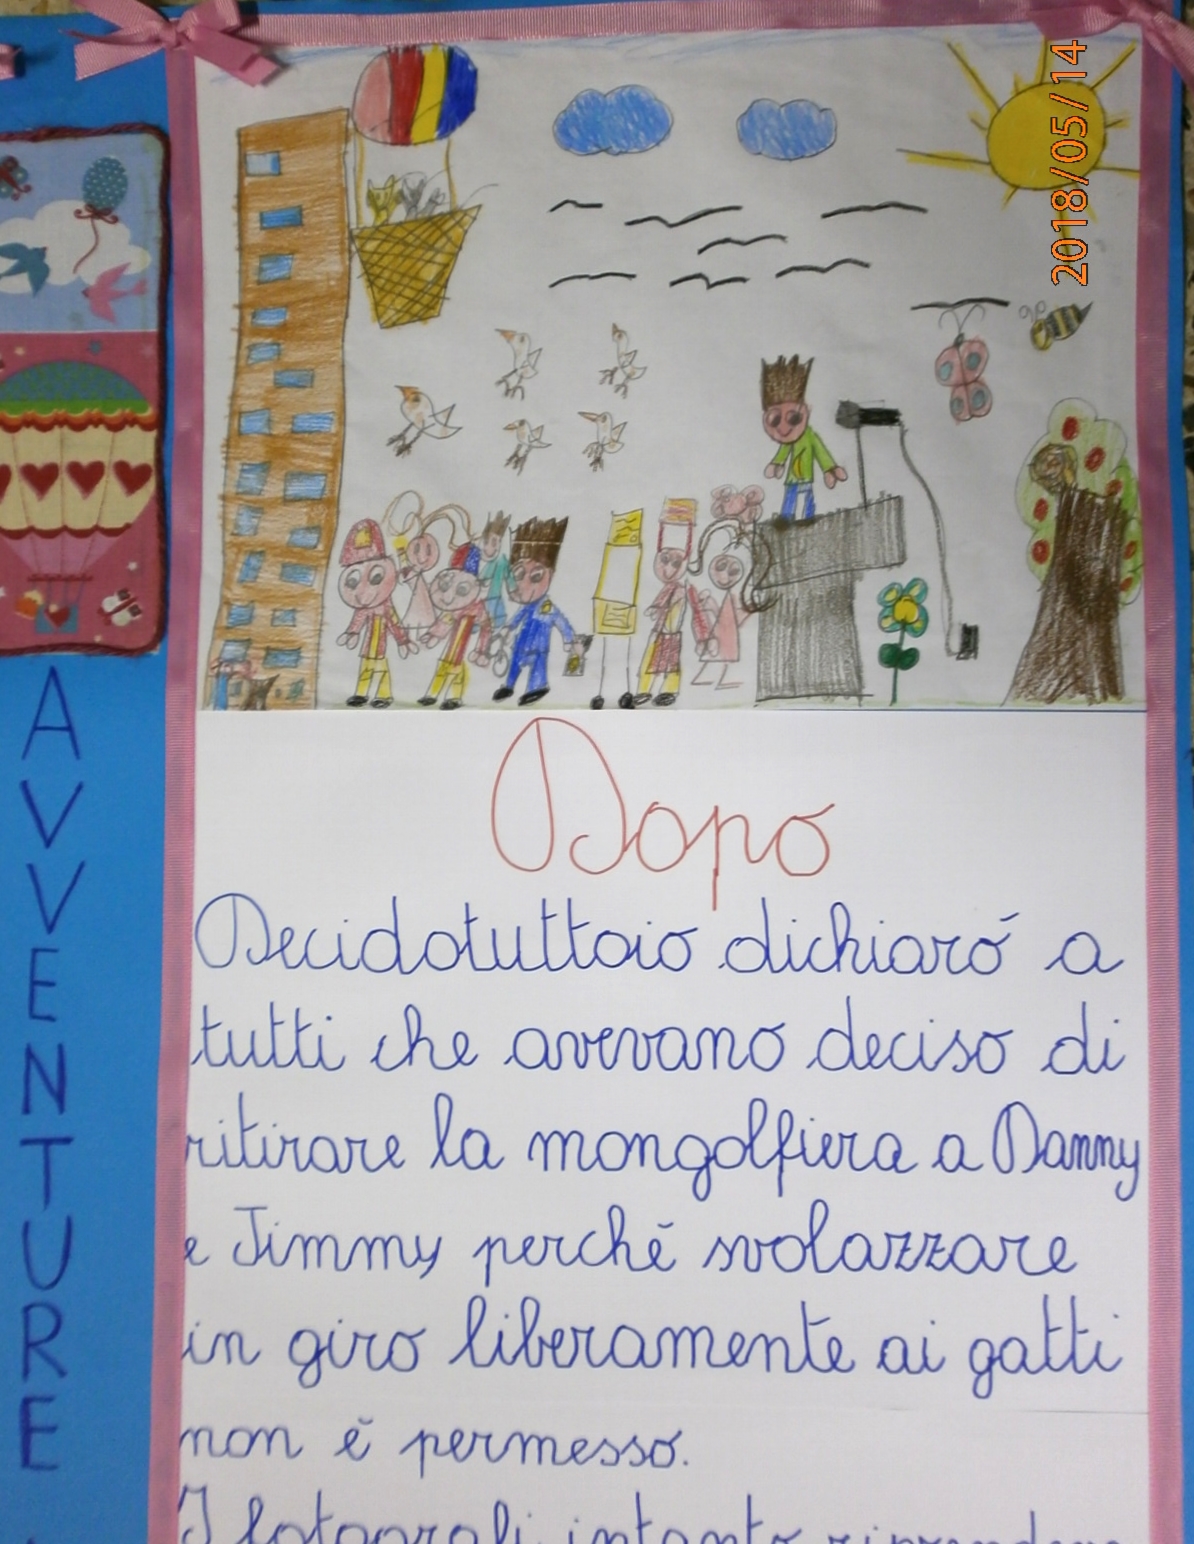 2018/05/14
AVVENTURE
Dopo
Decidotuttoio dichiaró a
tutti che avevano deciso di
ritirare la mongolfiera a Danny
e Jimmy perché svolazzare
in giro liberamente ai gatti
non é permesso.
I fotografi intanto